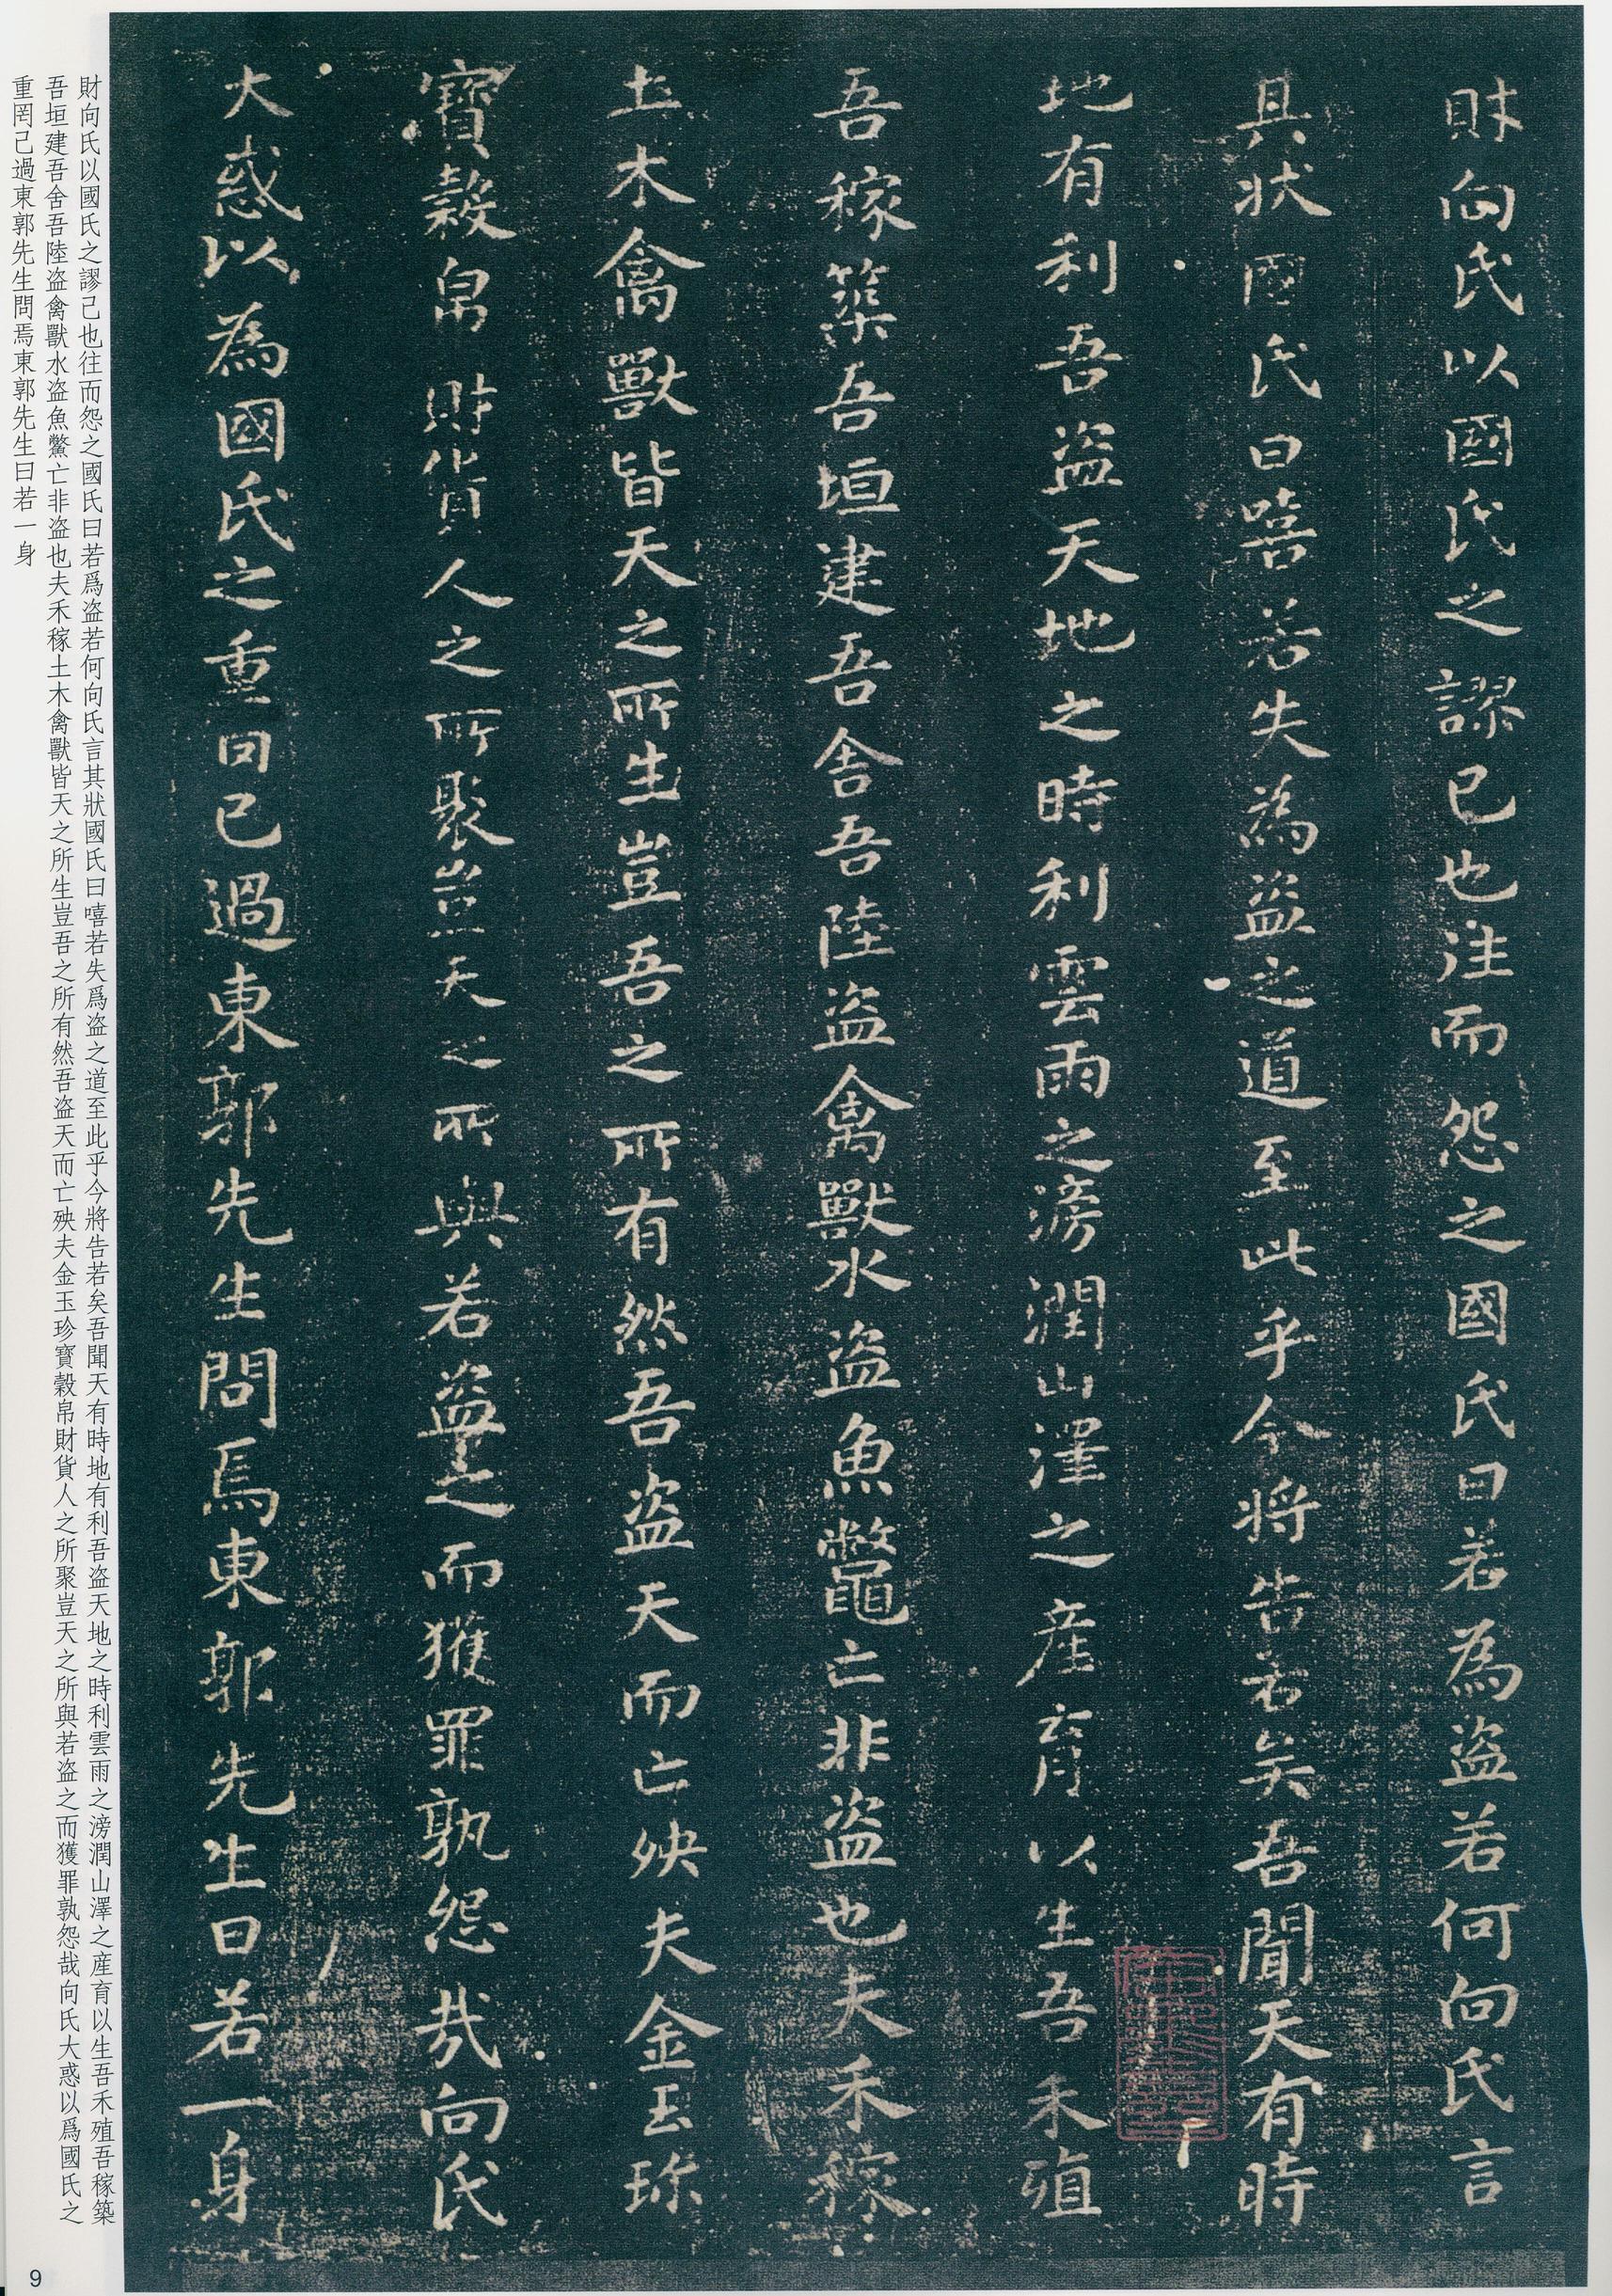 財向氏以國氏之謬己也往而怨之國氏曰若為盗若何向氏言
其狀國氏曰嘻若失為盗之道至此乎今將告若矣吾聞天有時
地有利吾盗天地之時利雲雨之滂潤山澤之産育以生吾禾殖
吾稼築吾垣建吾舍吾陸盗禽獸水盗魚鼈亡非盗也夫禾稼
土木禽獸皆天之所生豈吾之所有然吾盗天而亡殃夫金玉珎
寶穀帛財貨人之所聚豈天之所與若盗之而獲罪孰怨哉向氏
大惑以為國氏之重罔己過東郭先生問焉東郭先生曰若一身
財向氏以國氏之謬己也往而怨之國氏曰若爲盗若何向氏言其狀國氏曰嘻若失爲盗之道至此乎今將告若矣吾聞天有時地有利吾盗天地之時利雲雨之滂潤山澤之産育以生吾禾殖吾稼築
吾垣建吾舍吾陸盗禽獸水盗魚鱉亡非盗也夫禾稼土木禽獸皆天之所生豈吾之所有然吾盗天而亡殃夫金玉珍寶穀帛財貨人之所聚豈天之所與若盗之而獲罪孰怨哉向氏大惑以爲國氏之
重罔己過東郭先生問焉東郭先生曰若一身
9